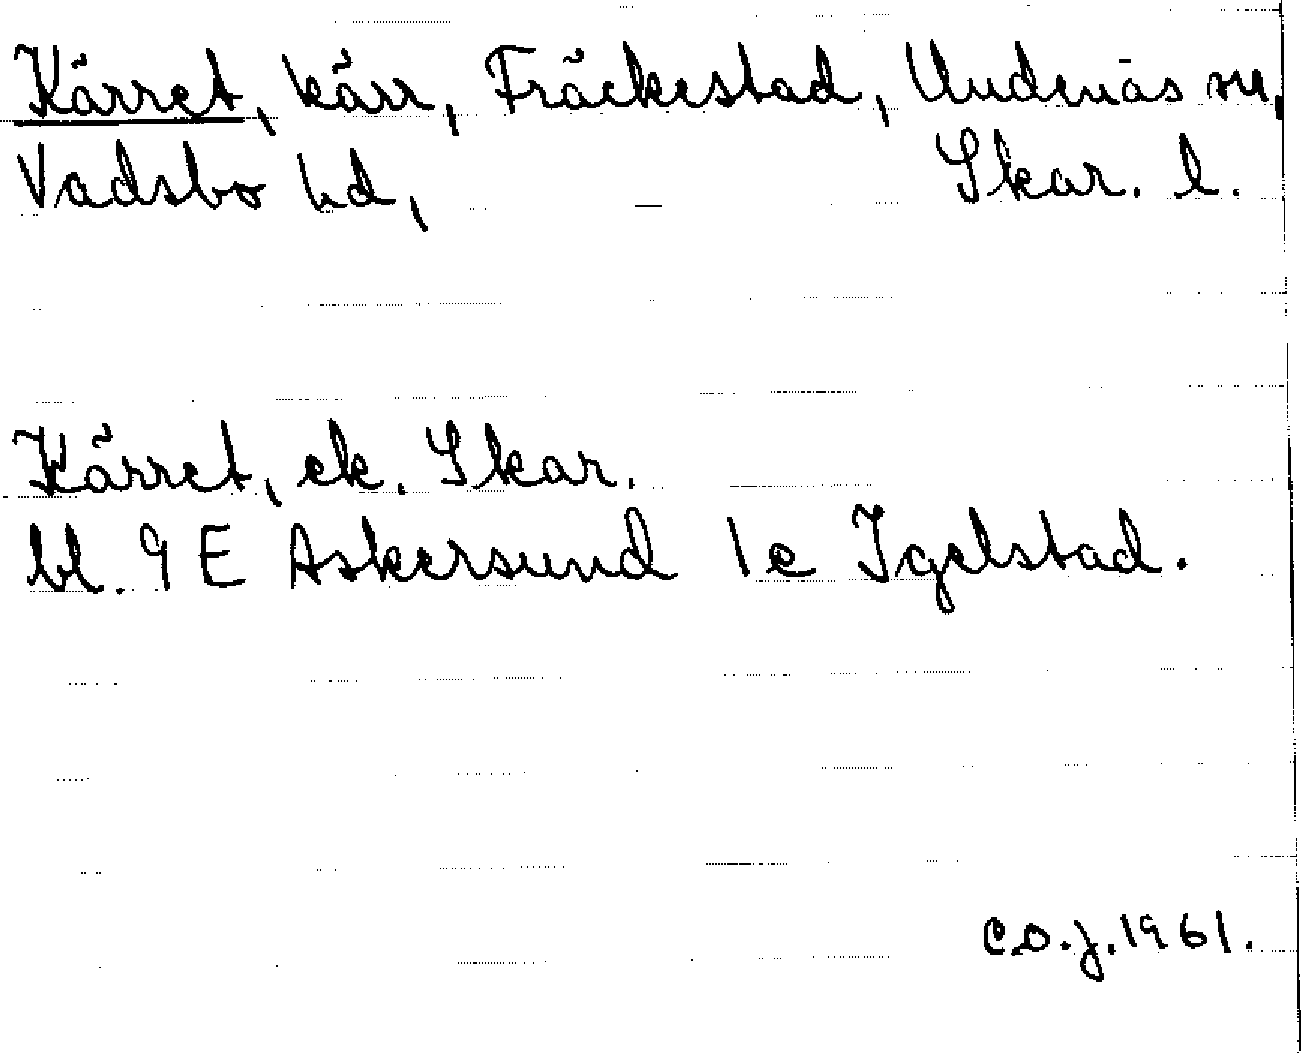 Kärret, kärr, Fräckestad, Undenäs sn,
Vadsbo hd, — Skar. l.
Kärret, ek. Skar.
bl. 9 E Askersund 1 c Igelstad.
C.O.J. 1961.